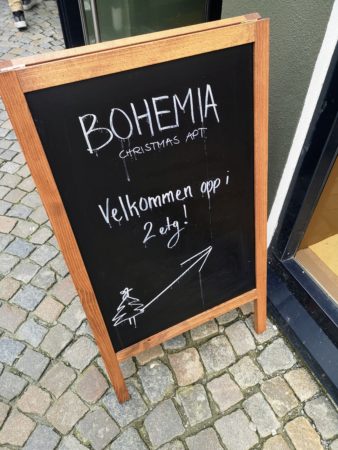 BOHEMIA
CHRISTMAS APT
Velkommen opp i
2 etg!